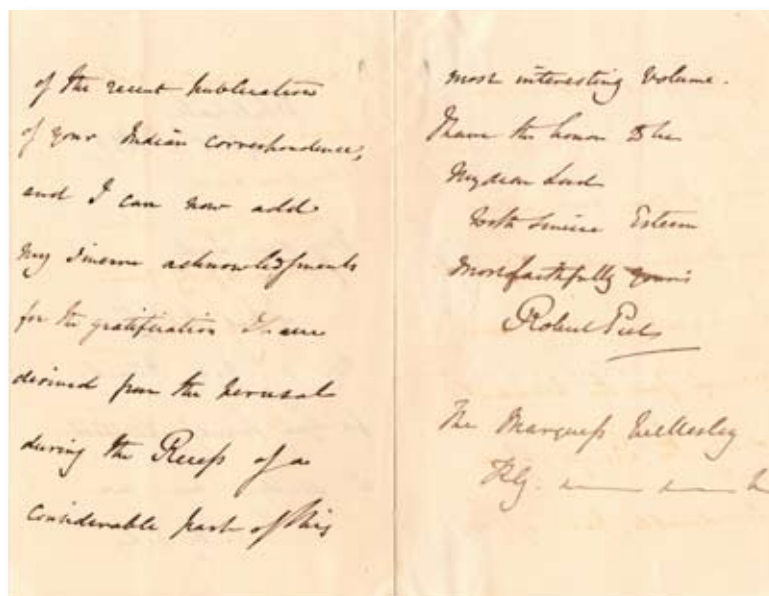 of the recent publication
of your Indian correspondence,
and I can now add
my sincere acknowledgments
for the gratification I have
derived from the perusal
during the Recess of a
considerable part of this
most interesting Volume.
I have the honor to be
My dear Lord
With sincere Esteem
Most faithfully yours
Robert Peel
The Marquess Wellesley